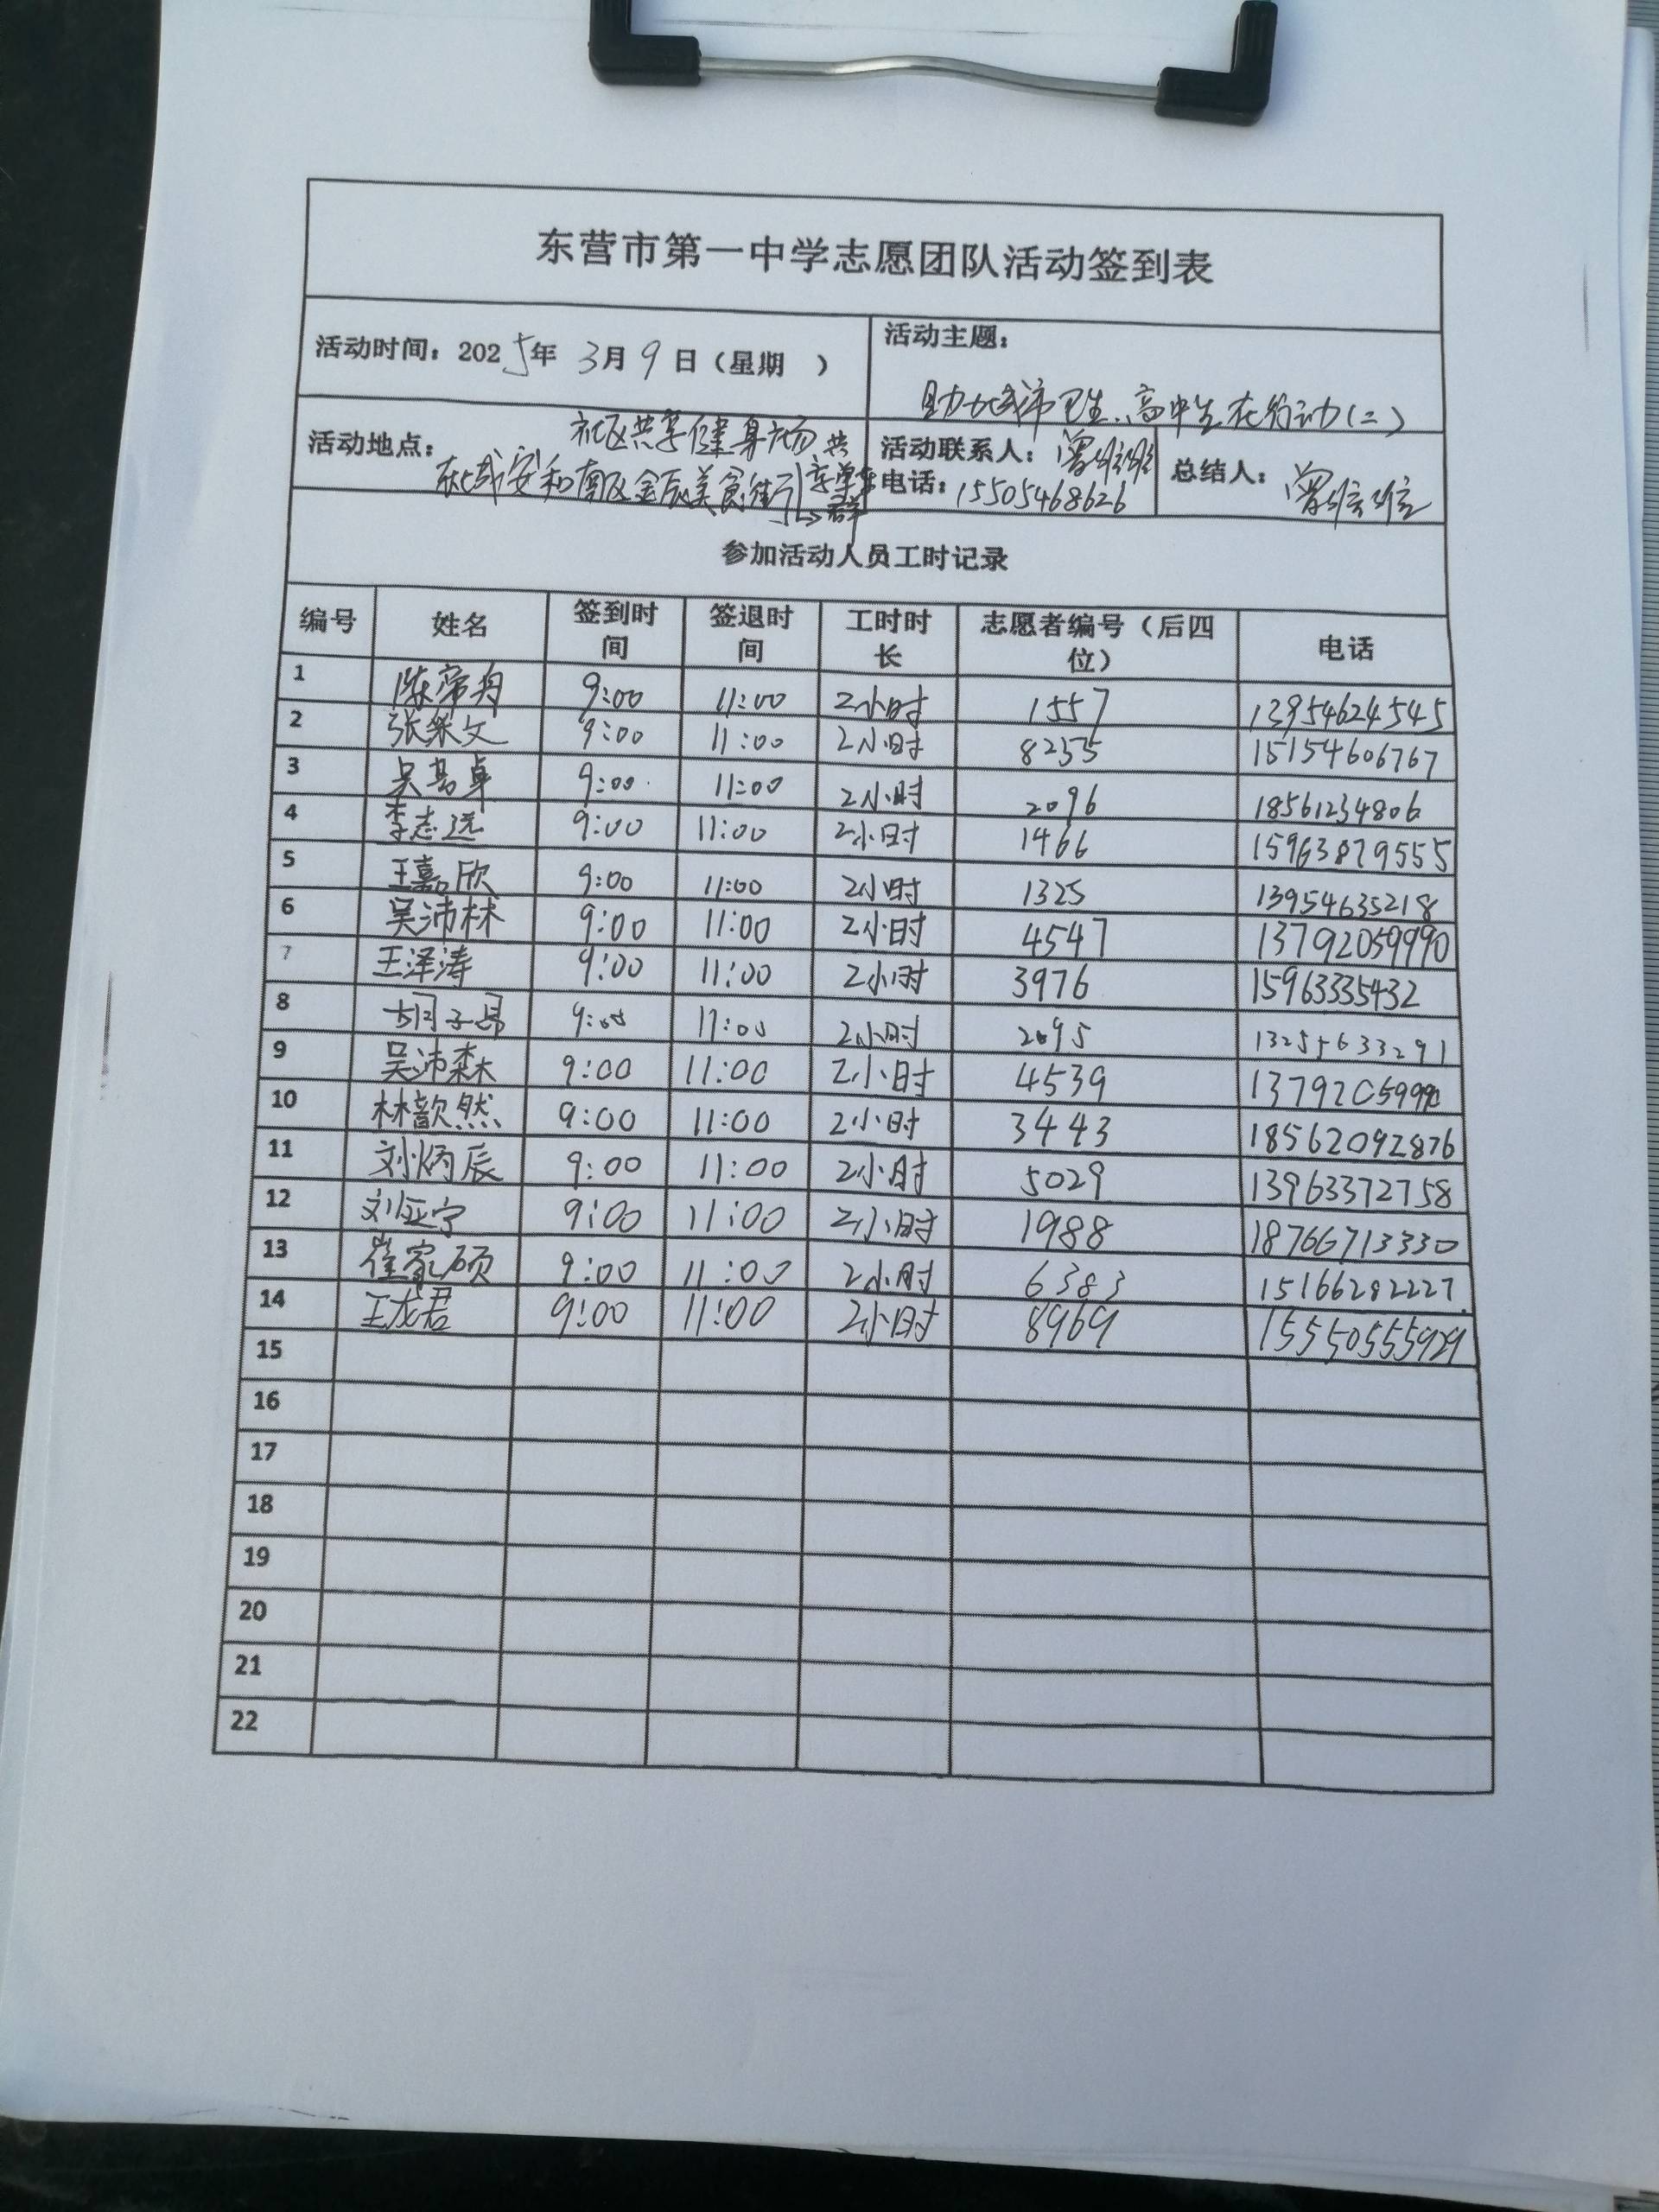 东营市第一中学志愿团队活动签到表
活动时间：2025年 3月 9日（星期 ）
活动主题：
助力城市卫生，高中生在行动(二)
活动地点：
社区共享健身场 共
东城安和南区金辰美食街 享单车
群
活动联系人：
电话：15505468626
总结人：
参加活动人员工时记录
编号 姓名 签到时间 签退时间 工时时长 志愿者编号（后四位） 电话
1 陈帝舟 9:00 11:00 2小时 1557 13954624545
2 张纂文 9:00 11:00 2小时 8255 15154606767
3 吴易卓 9:00 11:00 2小时 2096 18561234806
4 李志远 9:00 11:00 2小时 1466 15963879555
5 王嘉欣 9:00 11:00 2小时 1325 13954635218
6 吴沛林 9:00 11:00 2小时 4547 13792059990
7 王泽涛 9:00 11:00 2小时 3976 15963335432
8 胡子昂 9:00 11:00 2小时 2095 13255633291
9 吴沛森 9:00 11:00 2小时 4539 13792059990
10 林歆然 9:00 11:00 2小时 3443 18562092876
11 刘炳辰 9:00 11:00 2小时 5029 13963372758
12 刘亚宁 9:00 11:00 2小时 1988 18766713330
13 崔家硕 9:00 11:00 2小时 6383 15166282227
14 王龙君 9:00 11:00 2小时 8969 15550555929
15
16
17
18
19
20
21
22